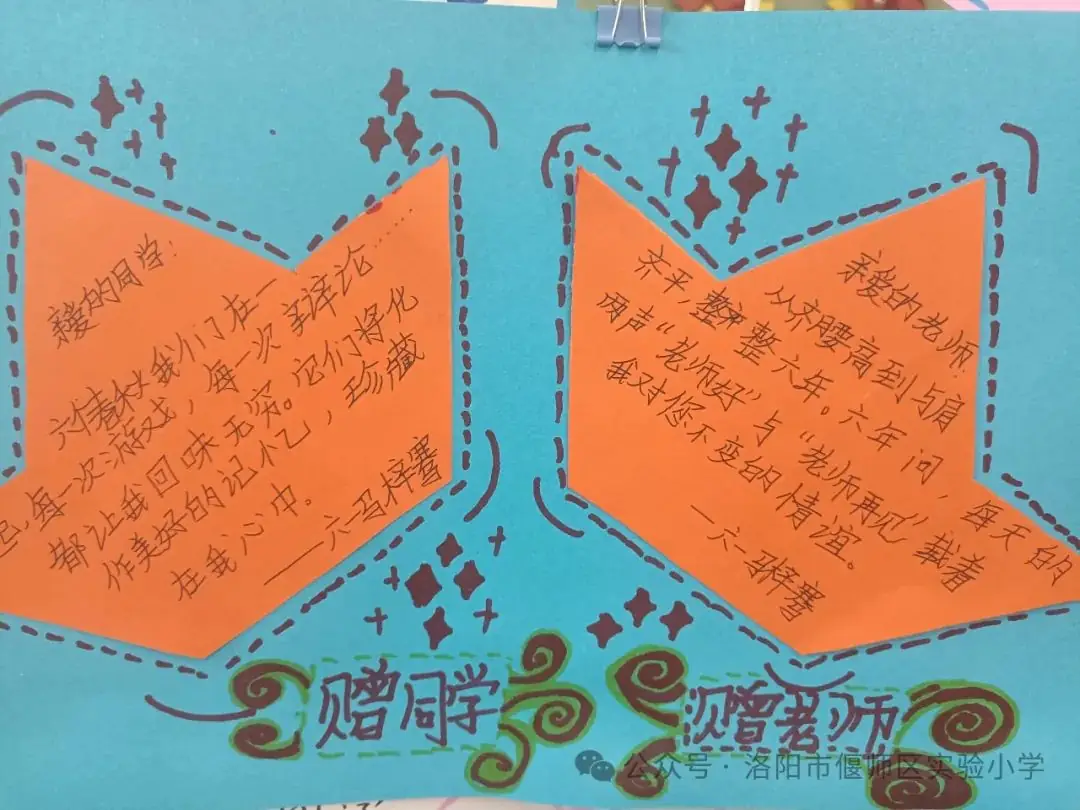 亲爱的同学：
六个春秋，我们在一
起，每一次游戏，每一次辩论……
都让我回味无穷。它们将化
作美好的记忆，珍藏
在我心中。
——六一马梓骞
亲爱的老师：
从齐腰高到与肩
齐平，整整六年。六年间，每天的
两声“老师好”与“老师再见”载着
我对您不变的情谊。
—六一马梓骞
赠同学
赠老师
公众号·洛阳市偃师区实验小学